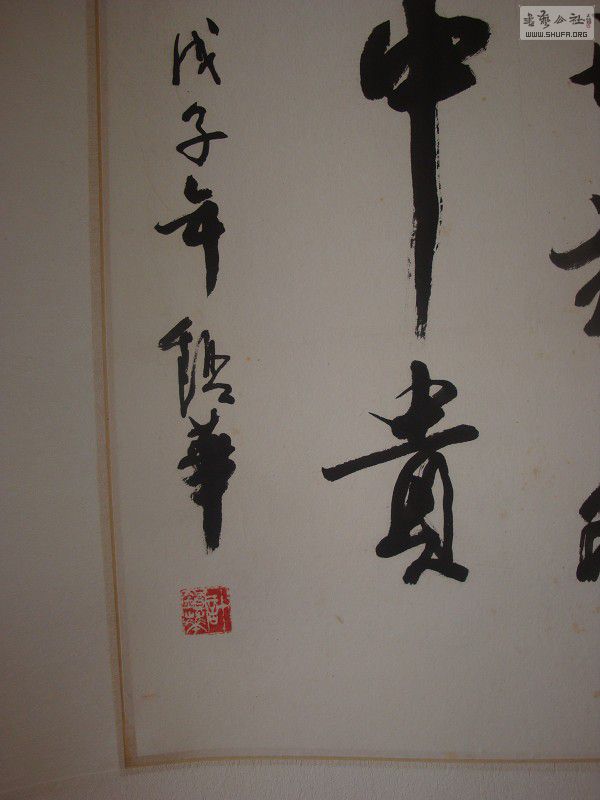 書藝公社
WWW.SHUFA.ORG
中貴
戊子年 鎮華
計鎮華